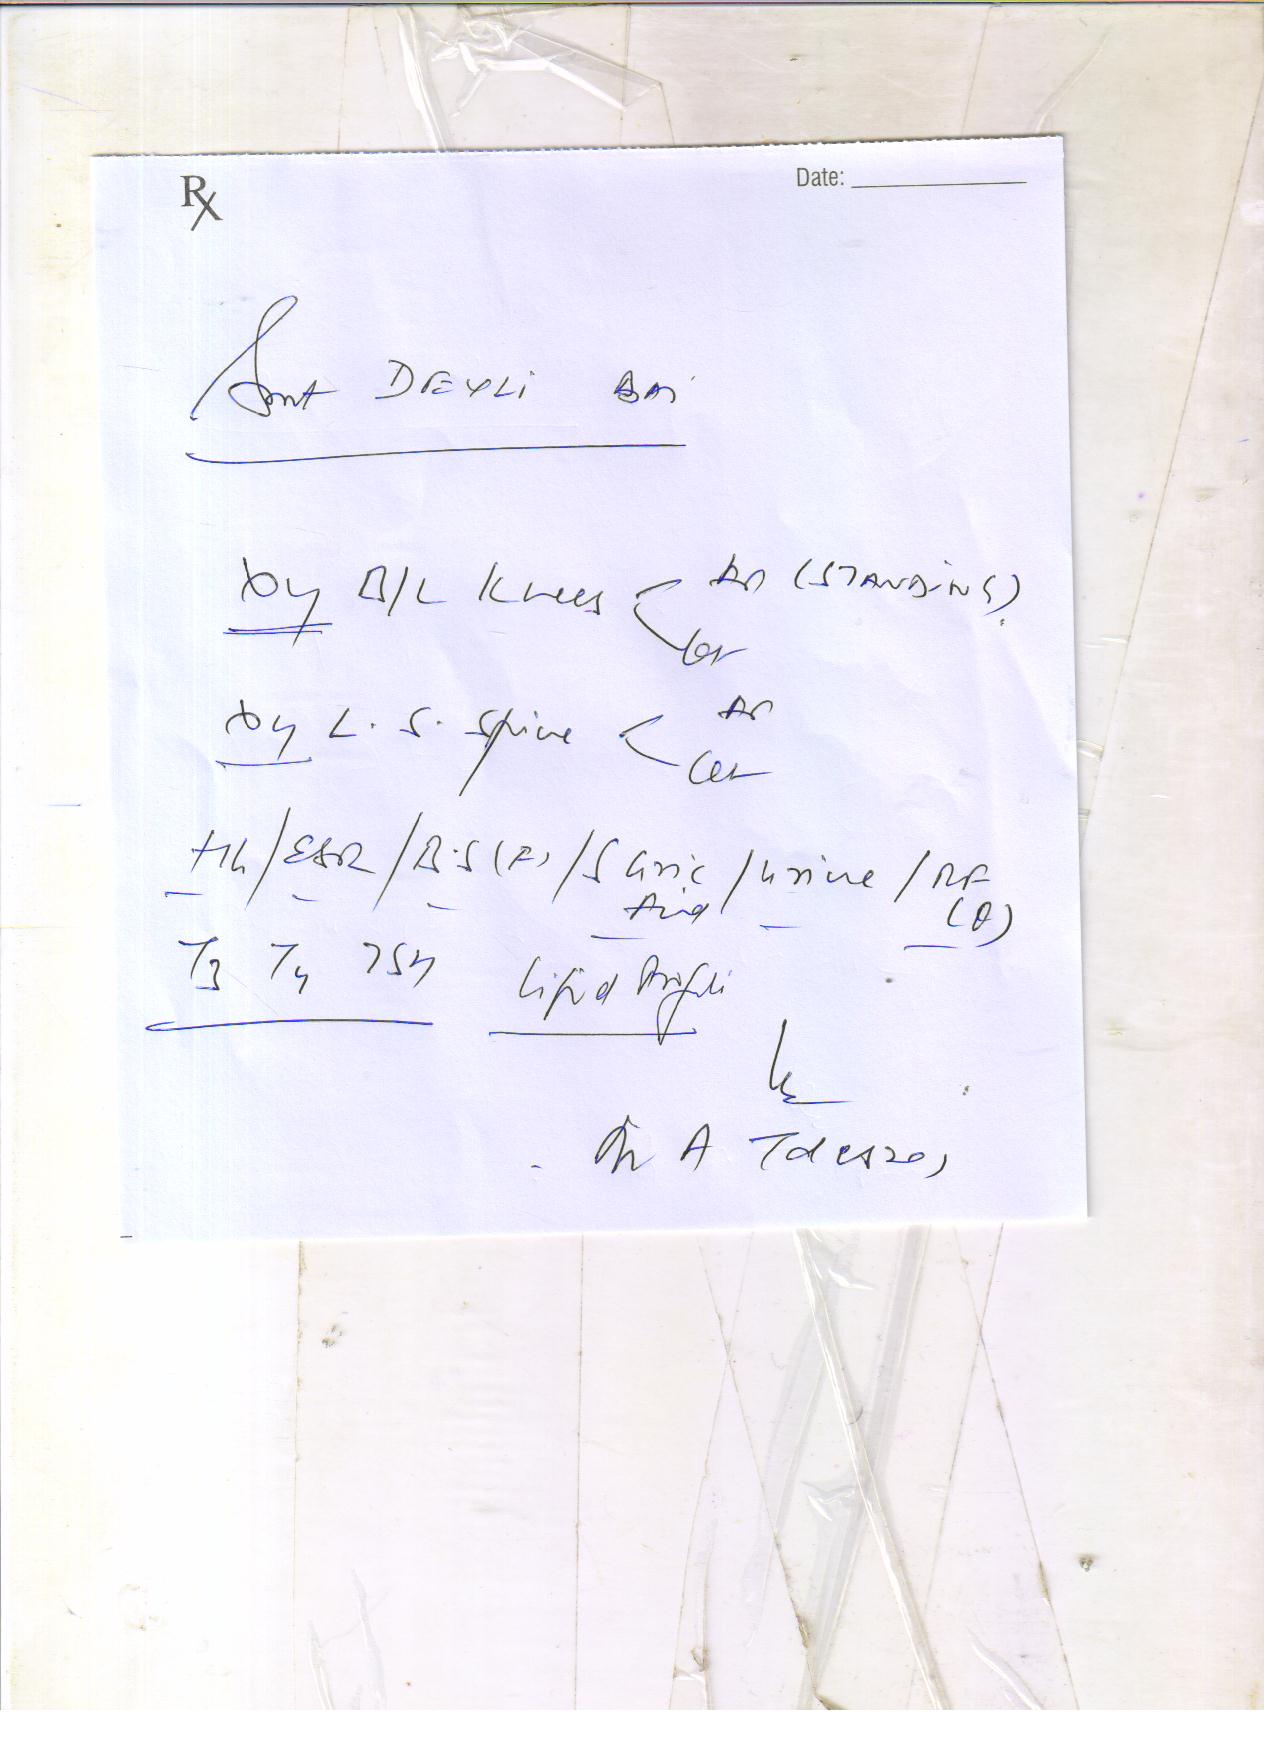 Rx Date:
Smt DEYLi BAi
Xry B/L Knees < AP (STANDING)
Lat
Xry L. S. Spine < AP
Lat
Hb/ESR/B.S(F)/S Uric Acid/Urine/RF (Q)
T3 T4 TSH Lipid Profile
Dr A